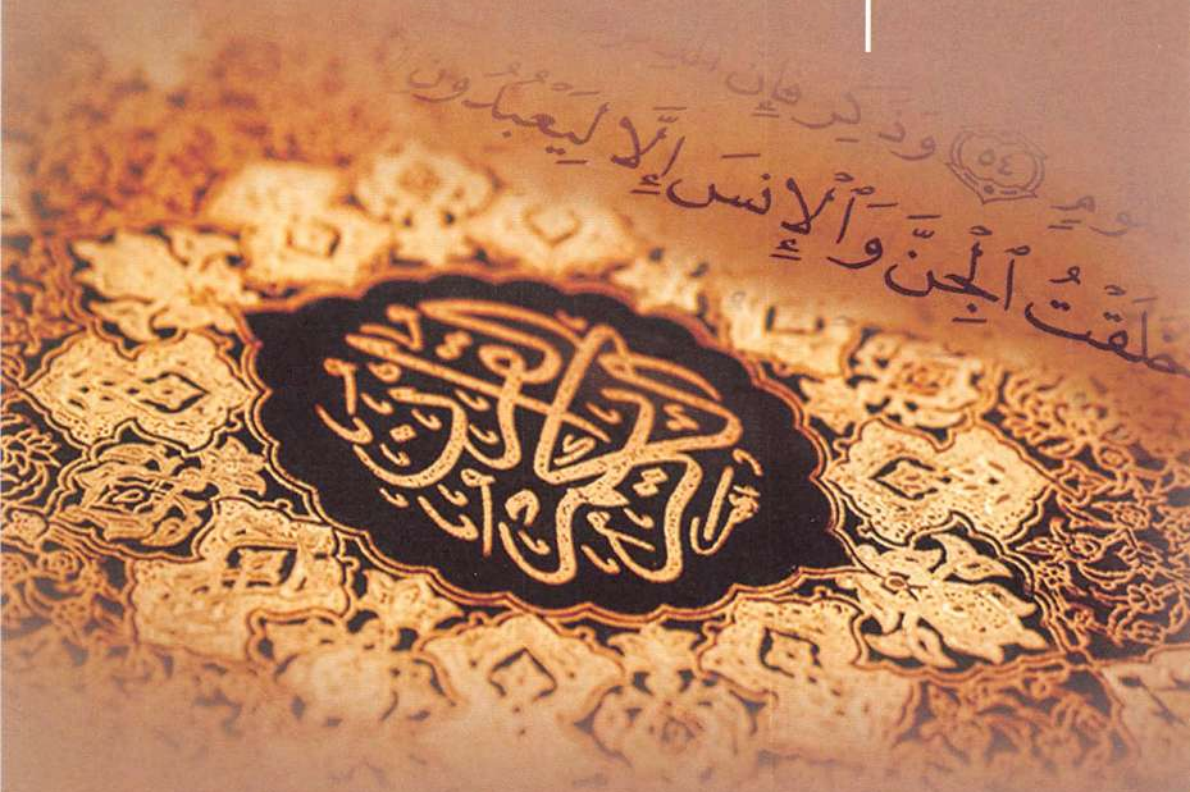 ومٍ ﴿٥٤﴾ وَذَكِّرْ فَإِنَّ
خَلَقْتُ ٱلْجِنَّ وَٱلْإِنسَ إِلَّا لِيَعْبُدُونِ
القرآن الكريم